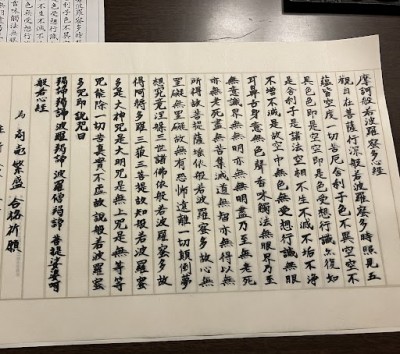 摩訶般若波羅蜜多心経
観自在菩薩行深般若波羅蜜多時照見五
蘊皆空度一切苦厄舎利子色不異空空不
異色色即是空空即是色受想行識亦復如
是舎利子是諸法空相不生不滅不垢不浄
不増不減是故空中無色無受想行識無眼
耳鼻舌身意無色聲香味觸法無眼界乃至
無意識界無無明亦無無明盡乃至無老死
亦無老死盡無苦集滅道無智亦無得以無
所得故菩提薩埵依般若波羅蜜多故心無
罣礙無罣礙故無有恐怖遠離一切顛倒夢
想究竟涅槃三世諸佛依般若波羅蜜多故
得阿耨多羅三藐三菩提故知般若波羅蜜
多是大神呪是大明呪是無上呪是無等等
呪能除一切苦真実不虚故説般若波羅蜜
多呪即説呪曰
羯諦羯諦波羅羯諦波羅僧羯諦菩提娑婆訶
般若心経
為 商売繁盛 合格祈願